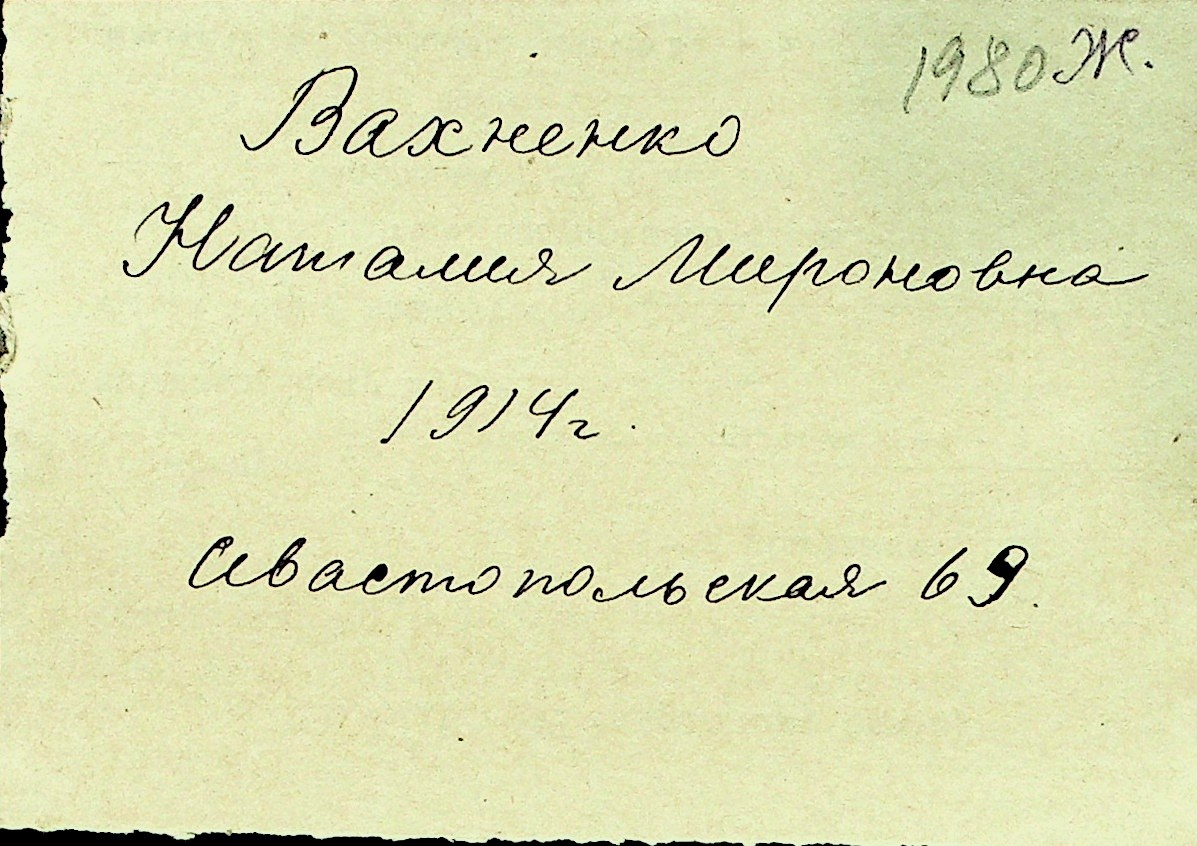 1980 Ж.
Вахненко
Наталия Мироновна
1914г.
Севастопольская 69.